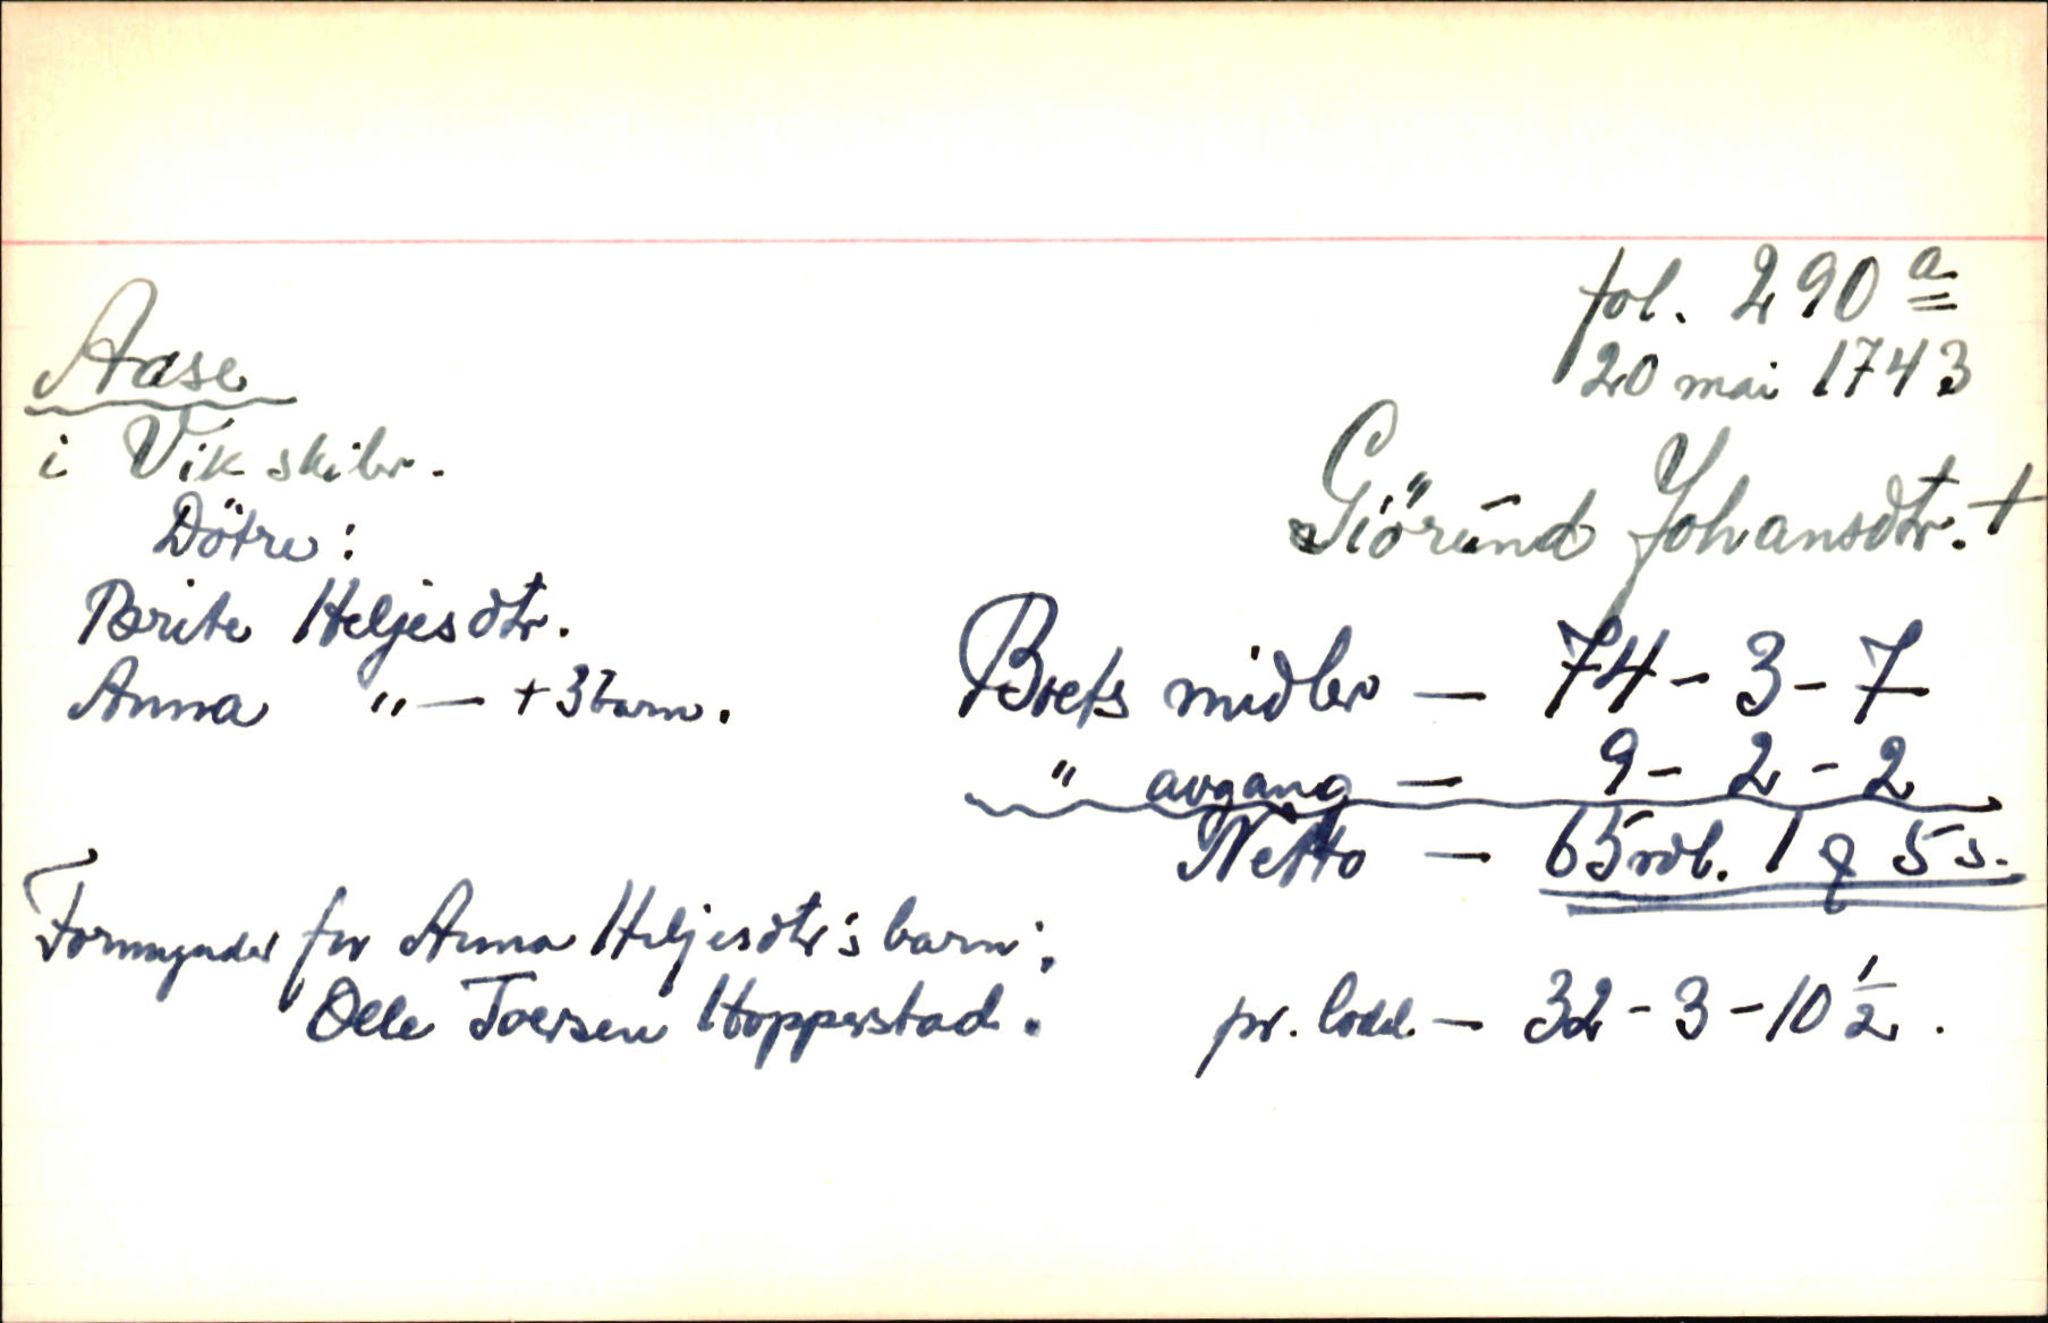 fol. 290 a
20 mai 1743
Aase
i Vik skibr.
Giörund Johansdtr. +
Dötre:
Brite Heljesdtr.
Anna " — + 3 barn.
Boets midler — 74 - 3 - 7
" avgang — 9 - 2 - 2
Netto — 65 rdl. 1 q 5 s.
Formynder for Anna Heljesdtr's barn:
Olle Joersen Hopperstad.
pr. lodd. — 32 - 3 - 10 1/2.